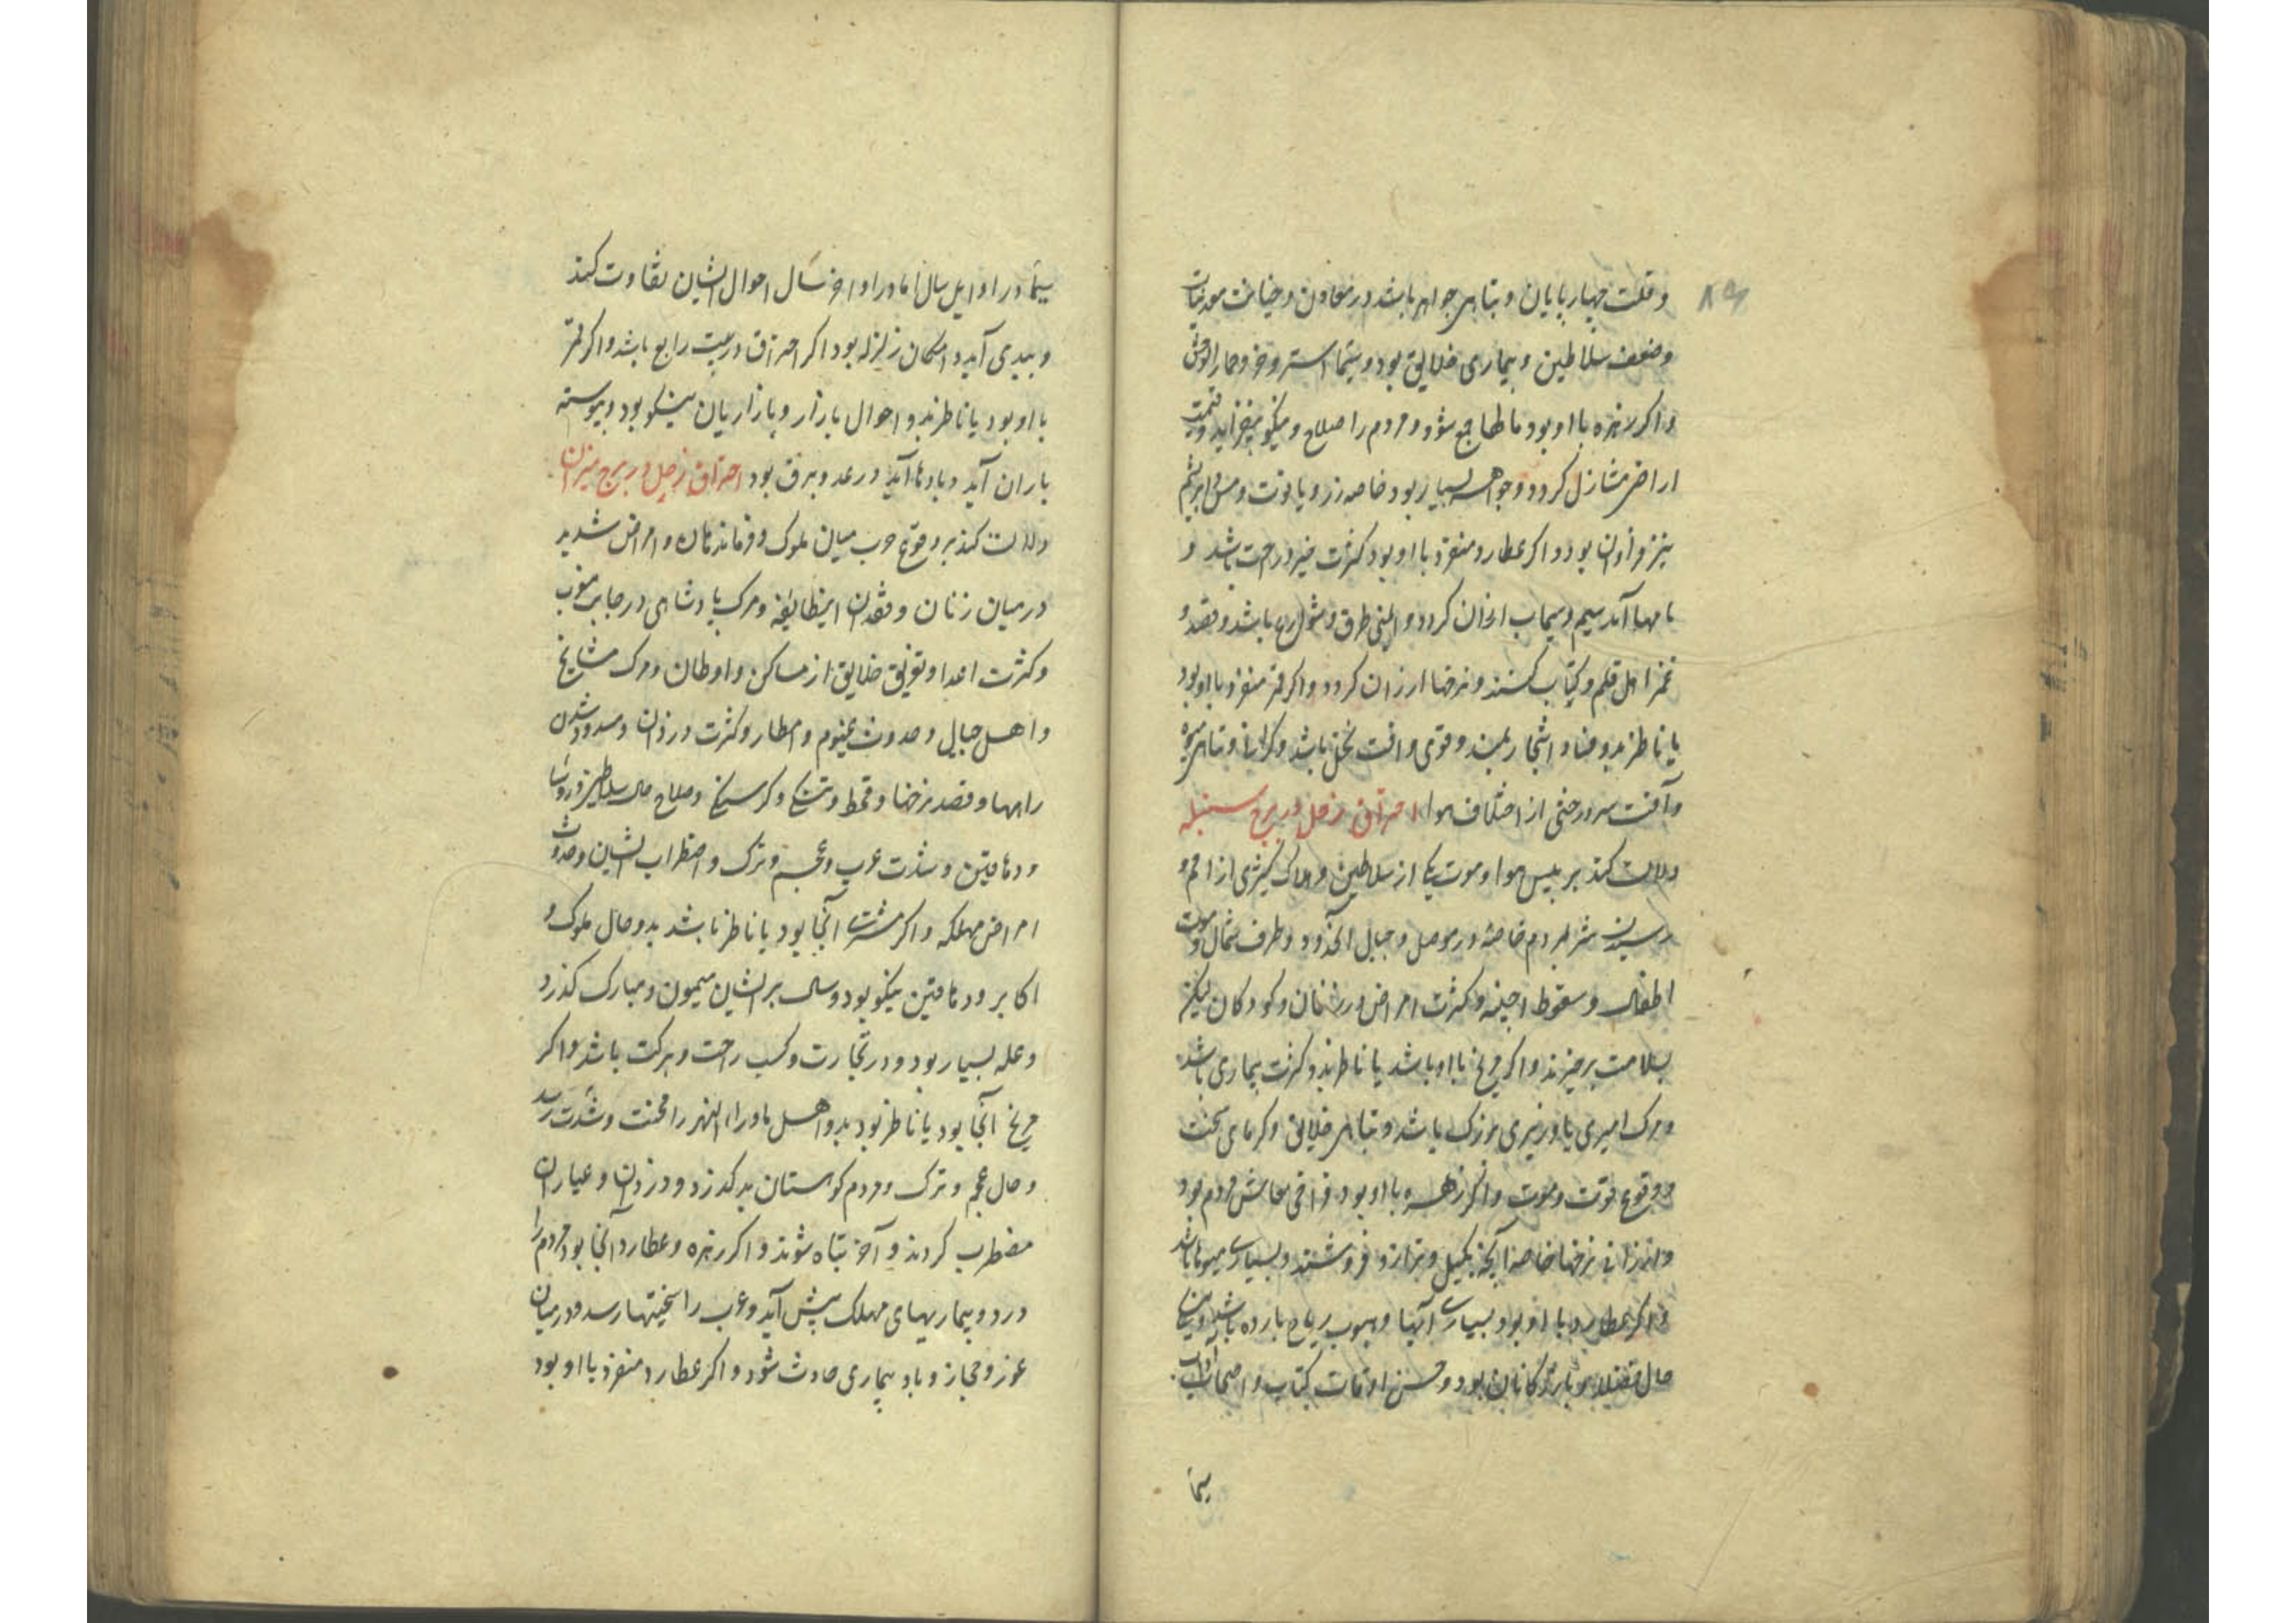 ۸۹
وقلت چهارپایان و تباهی جواهر باشد در معادن و خیانت
وضعف سلاطین و بیماری خلایق بود و سیما استر و خر و حمار الوحش
واکر زهره با او بود ماطها جع شود و مردم را صلاح و نیکویی فزاید و قیمت
اراضی متنازل کردد و جواهر بسیار بود خاصه زر و یاقوت و مس و ابریشم
نیز فراوان بود و اکر عطارد منفرد با او بود کثرت خیر و راحت باشد و
نامها آید سیم و سیماب ارزان کردد و ایمنی طرق و باشد و قصد و
غمز اهل قلم و کتاب کنند و نرخها ارزان کردد و اکر قمر منفرد با او بود
یا ناظر بدو فساد اشجار بلند و قوی و آفت نخل باشد و کرانی و تباهی میوه
وآفت سردرختی از اختلاف هوا احتراق زحل در برج سنبله
دلالت کند بر یبس هوا و موت یکی از سلاطین و هلاک کثیری از امم و
رسیدن شر بمردم خاصه در موصل و جبال و طرف شمال و موت
اطفال و سقوط اجنه و کثرت امراض در زنان و کودکان لیکن
بسلامت برخیزند و اکر مریخ با او باشد یا ناظر بدو کثرت بیماری باشد
و مرک امیری یا وزیری بزرک باشد و تباهی خلایق و کرمای سخت
و وقوع فوت و موت و اکر زهره با او بود فراخی معاش مردم بود
و ارزانی نرخها خاصه آنچه بکیل و ترازو فروشند و بسیاری میوها باشد
واکر عطارد با او بود بسیاری آبها و هبوب ریاح بارده باشد
حال فضلا و بازرکانان بود و حسن اوقات کتاب و اصحاب
سیما
سیما در اوایل سال اما در اواخر سال احوال ایشان تفاوت کند
و ببدی آید و امکان زلزله بود اکر احتراق در بیت رابع باشد و اکر قمر
با او بود یا ناظر بدو احوال بازار و بازاریان نیکو بود و پیوسته
باران آید و بادها آید و رعد و برق بود احتراق زحل در برج میزان
دلالت کند بر وقوع حرب میان ملوک و فرماندهان و امراض شدید
در میان زنان و فقدان اینطایفه و مرک پادشاهی در جانب مغرب
وکثرت اعدا و تفریق خلایق از مساکن و اوطان و مرک مشایخ
واهل جبال و حدوث غیوم و امطار و کثرت دزدان و مسدود شدن
راهها و قصد نرخها و قحط و تنکی و کرسنکی و صلاح حال سلاطین و روسا
و دهاقین و شدت عرب و عجم و ترک و اضطراب ایشان و حدوث
امراض مهلکه و اکر مشتری آنجا بود یا ناظر باشد بدو حال ملوک و
اکابر و دهاقین نیکو بود و سال بر ایشان میمون و مبارک کذرد
وغله بسیار بود و در تجارت و کسب راحت و برکت باشد و اکر
مریخ آنجا بود یا ناظر بود بدو اهل ماوراء النهر را محنت و شدت رسد
وحال عجم و ترک و مردم کوهستان بد کذرد و دزدان و عیاران
مضطرب کردند و آخر تباه شوند و اکر زهره و عطارد آنجا بود مردم را
درد و بیماریهای مهلک پیش آید و عرب را سختیها رسد و در میان
غور و حجاز و باد بیماری حادث شود و اکر عطارد منفرد با او بود